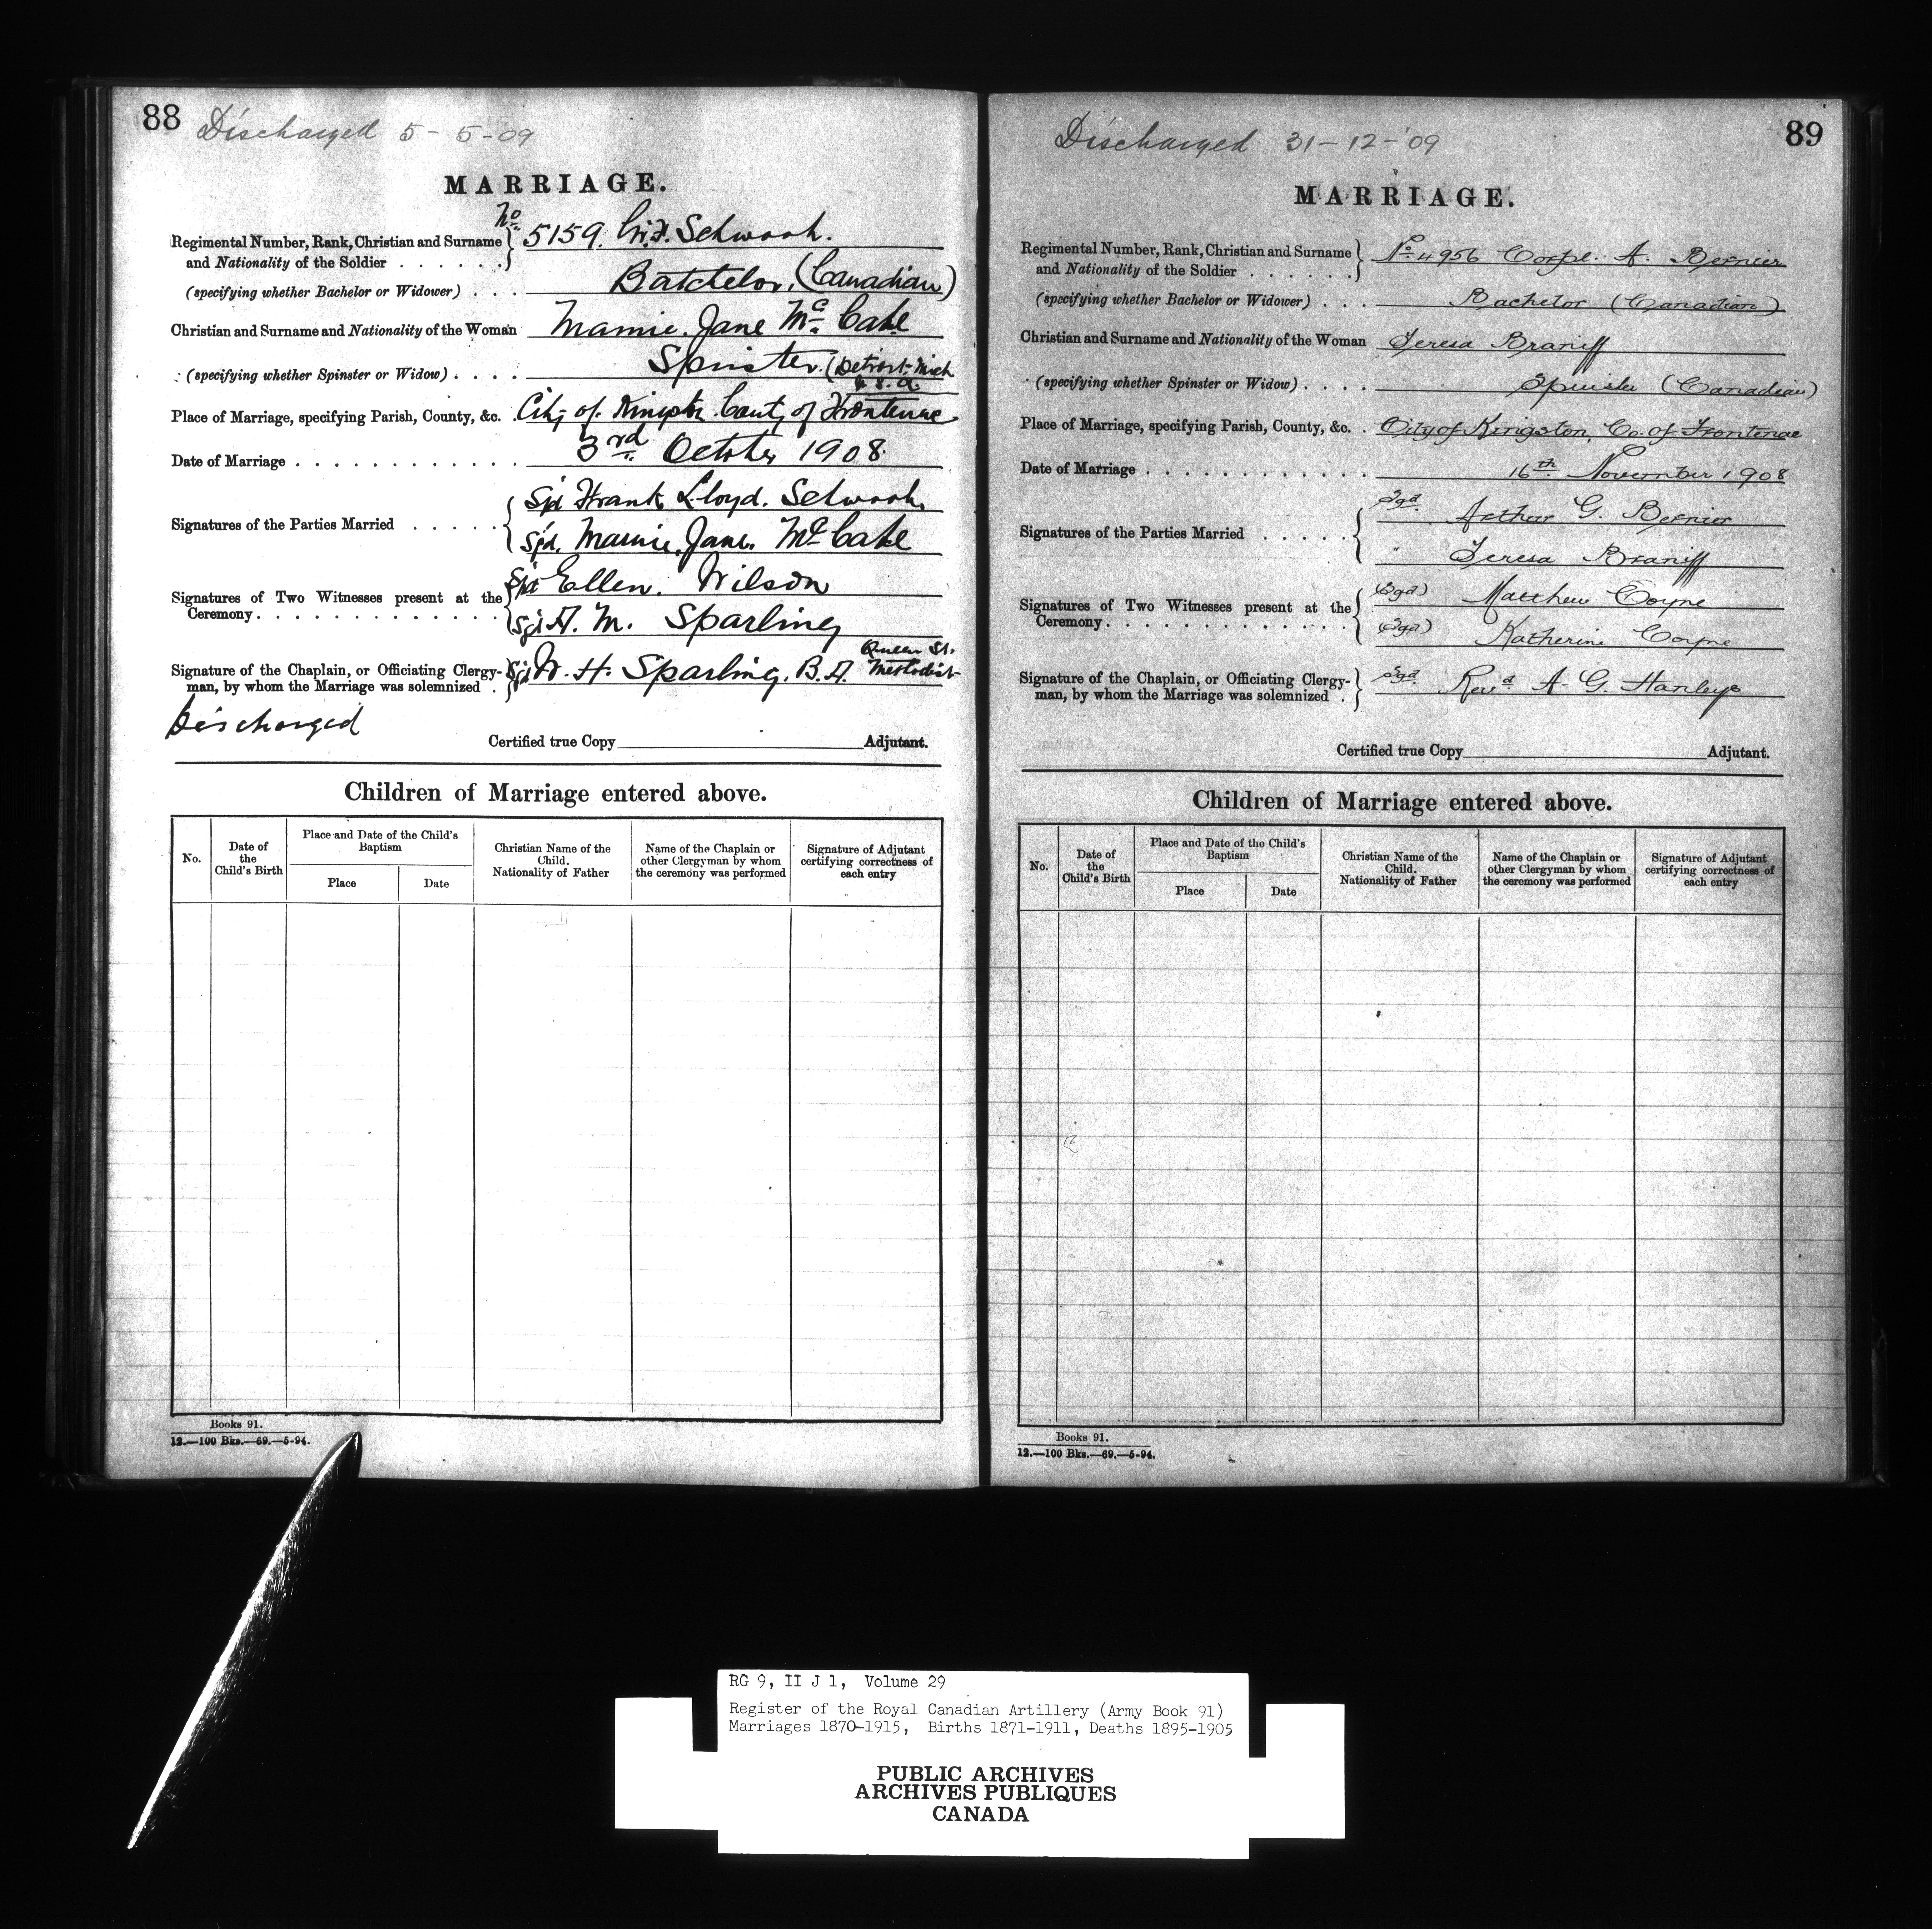 88
Discharged 5-5-09
MARRIAGE.
No
Regimental Number, Rank, Christian and Surname 5159. Schwook.
and Nationality of the Soldier . . . . . .
(specifying whether Bachelor or Widower) . . . Batchelor. (Canadian)
Christian and Surname and Nationality of the Woman Mamie. Jane Mc Cabe
(specifying whether Spinster or Widow) . . . . Spinster. (Detroit. Mich
U.S.A.
Place of Marriage, specifying Parish, County, &c. . City of Kingston County of Frontenac
Date of Marriage . . . . . . . . . . . . . 3rd October 1908.
Sgd Frank Lloyd. Schwook.
Signatures of the Parties Married . . . . .
Sgd. Mamie. Jane. Mc Cabe
Sgd Ellen. Wilson
Signatures of Two Witnesses present at the
Ceremony . . . . . . . . . . . . .
Sgd A. M. Sparling
Queen St.
Signature of the Chaplain, or Officiating Clergy- Sgd W. H. Sparling. B.A. Methodist
man, by whom the Marriage was solemnized .
Discharged
Certified true Copy Adjutant.
Children of Marriage entered above.
No.
Date of
the
Child's Birth
Place and Date of the Child's
Baptism
Place
Date
Christian Name of the
Child.
Nationality of Father
Name of the Chaplain or
other Clergyman by whom
the ceremony was performed
Signature of Adjutant
certifying correctness of
each entry
Books 91.
12.—100 Bks.—69.—5-94.
89
Discharged 31-12-'09
MARRIAGE.
Regimental Number, Rank, Christian and Surname No 4956 Corpl. A. Bernier
and Nationality of the Soldier . . . . . .
(specifying whether Bachelor or Widower) . . . Bachelor (Canadian)
Christian and Surname and Nationality of the Woman Teresa Braniff
(specifying whether Spinster or Widow) . . . . Spinster (Canadian)
Place of Marriage, specifying Parish, County, &c. . City of Kingston, Co. of Frontenac
Date of Marriage . . . . . . . . . . . . . 16th November 1908
Sgd. Arthur G. Bernier
Signatures of the Parties Married . . . . .
" Teresa Braniff
(Sgd) Matthew Coyne
Signatures of Two Witnesses present at the
Ceremony . . . . . . . . . . . . .
(Sgd) Katherine Coyne
Signature of the Chaplain, or Officiating Clergy- Sgd. Revd A. G. Hanley
man, by whom the Marriage was solemnized .
Certified true Copy Adjutant.
Children of Marriage entered above.
No.
Date of
the
Child's Birth
Place and Date of the Child's
Baptism
Place
Date
Christian Name of the
Child.
Nationality of Father
Name of the Chaplain or
other Clergyman by whom
the ceremony was performed
Signature of Adjutant
certifying correctness of
each entry
Books 91.
12.—100 Bks.—69.—5-94.
RG 9, II J 1, Volume 29
Register of the Royal Canadian Artillery (Army Book 91)
Marriages 1870-1915, Births 1871-1911, Deaths 1895-1905
PUBLIC ARCHIVES
ARCHIVES PUBLIQUES
CANADA